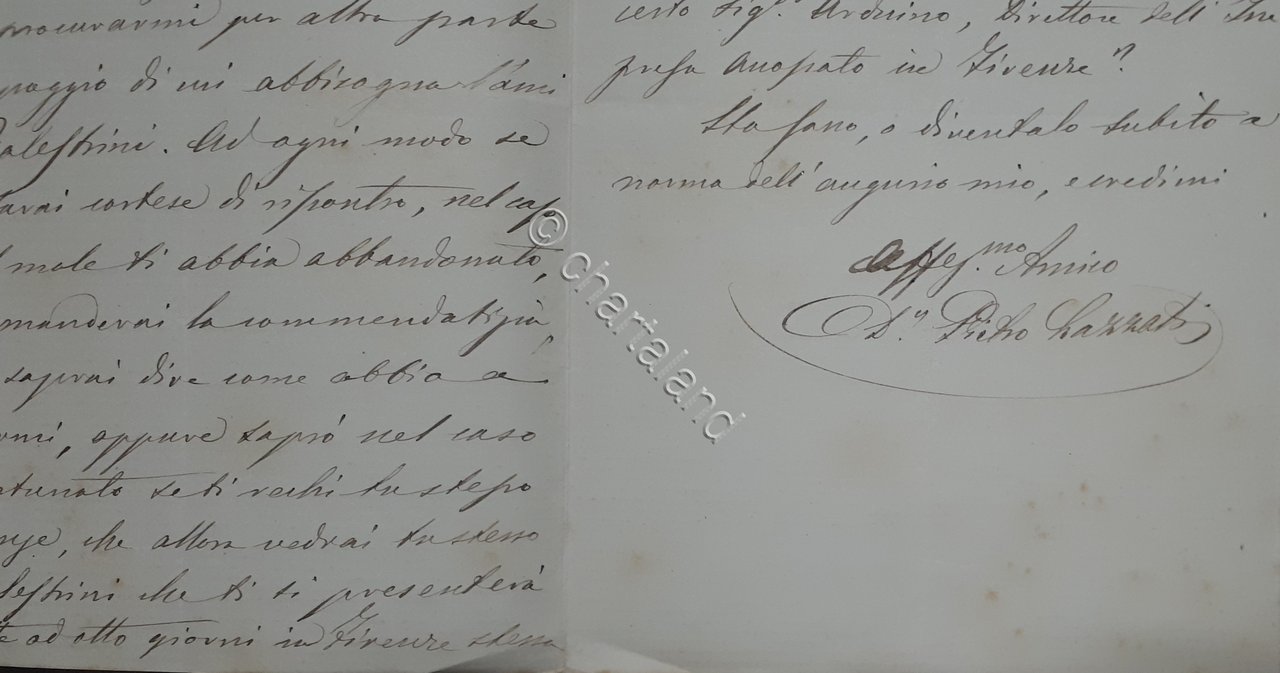 procurarmi per altra parte
poggio di cui abbisogna l'ami
alestrini. Ad ogni modo se
arai cortese di riscontro, nel caso
male ti abbia abbandonato,
manderai la commendatizia,
saprai dire come abbia a
rmi, oppure saprò nel caso
rtunato se ti rechi tu stesso
che allora vedrai tu stesso
lestrini che ti si presenterà
ad otto giorni in Firenze stessa
certo Sig.r Arduino, Direttore dell' Im
presa Anonato in Firenze"?
Sta sano, o diventalo subito a
norma dell' augurio mio, e credimi
Affez.mo Amico
D.r Pietro Lazzati
© chartaland